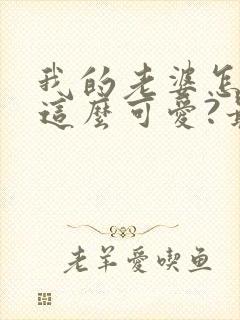 我的老婆怎
這麼可愛?
老羊愛喫鱼